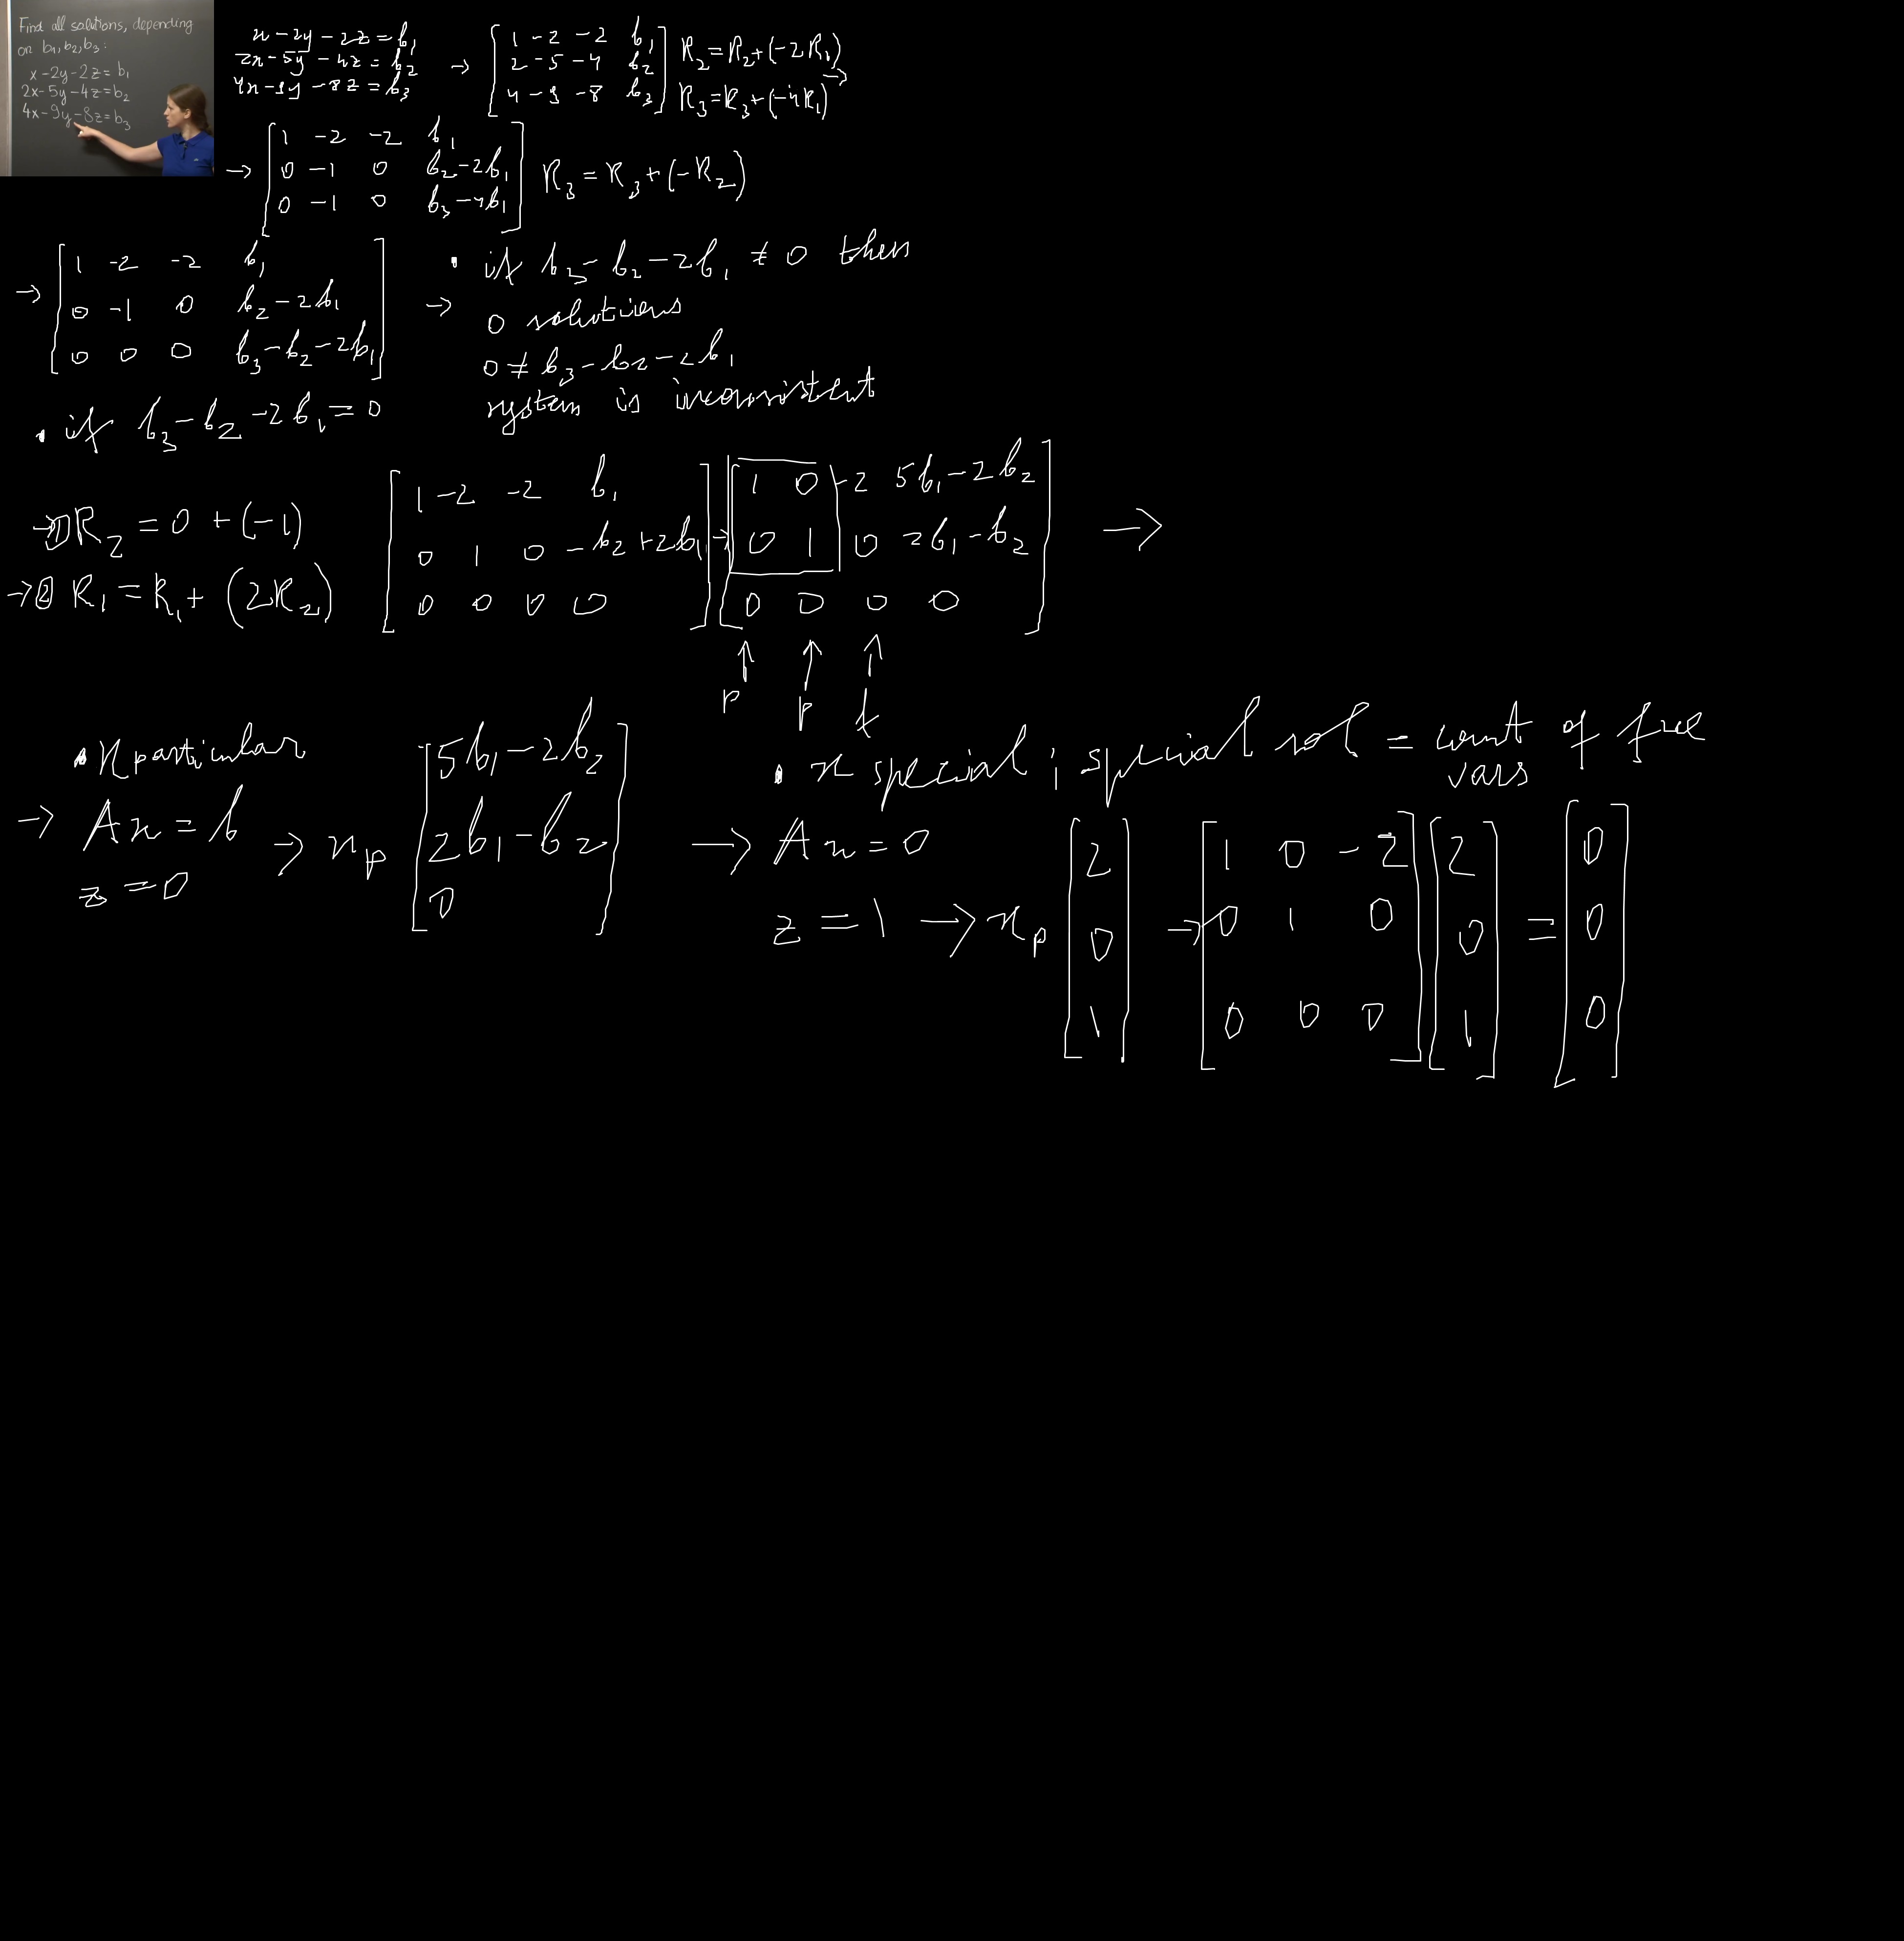 Find all solutions, depending
on b₁, b₂, b₃:
x - 2y - 2z = b₁
2x - 5y - 4z = b₂
4x - 9y - 8z = b₃
x - 2y - 2z = b₁
2x - 5y - 4z = b₂
4x - 9y - 8z = b₃
→
[1 -2 -2 b₁]
[2 -5 -4 b₂]
[4 -9 -8 b₃]
R₂ = R₂ + (-2R₁)
R₃ = R₃ + (-4R₁) →
→
[1 -2 -2 b₁]
[0 -1 0 b₂-2b₁]
[0 -1 0 b₃-4b₁]
R₃ = R₃ + (-R₂)
→
[1 -2 -2 b₁]
[0 -1 0 b₂-2b₁]
[0 0 0 b₃-b₂-2b₁]
→
• if b₃ - b₂ - 2b₁ ≠ 0 then
0 solutions
0 ≠ b₃ - b₂ - 2b₁
system is inconsistent
• if b₃ - b₂ - 2b₁ = 0
→① R₂ = 0 + (-1)
→② R₁ = R₁ + (2R₂)
[1 -2 -2 b₁]
[0 1 0 -b₂+2b₁]
[0 0 0 0]
→
[1 0 -2 5b₁-2b₂]
[0 1 0 2b₁-b₂]
[0 0 0 0]
→
↑ ↑ ↑
p p f
• x particular
→ Ax = b
z = 0
→ xₚ
[5b₁-2b₂]
[2b₁-b₂]
[0]
• x special ; special sol = count of free
vars
→ Ax = 0
z = 1 → xₚ
[2]
[0]
[1]
→
[1 0 -2] [2] [0]
[0 1 0] [0] = [0]
[0 0 0] [1] [0]